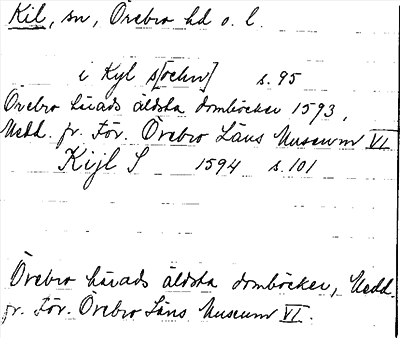 Kil, sn, Örebro hd o. l.
i Kyl s[ochn] s. 95
Örebro härads äldsta domböcker 1593,
Medd. fr. För. Örebro Läns Museum VI
Kijl S 1594 s. 101
Örebro härads äldsta domböcker, Medd.
fr. För. Örebro Läns Museum VI.